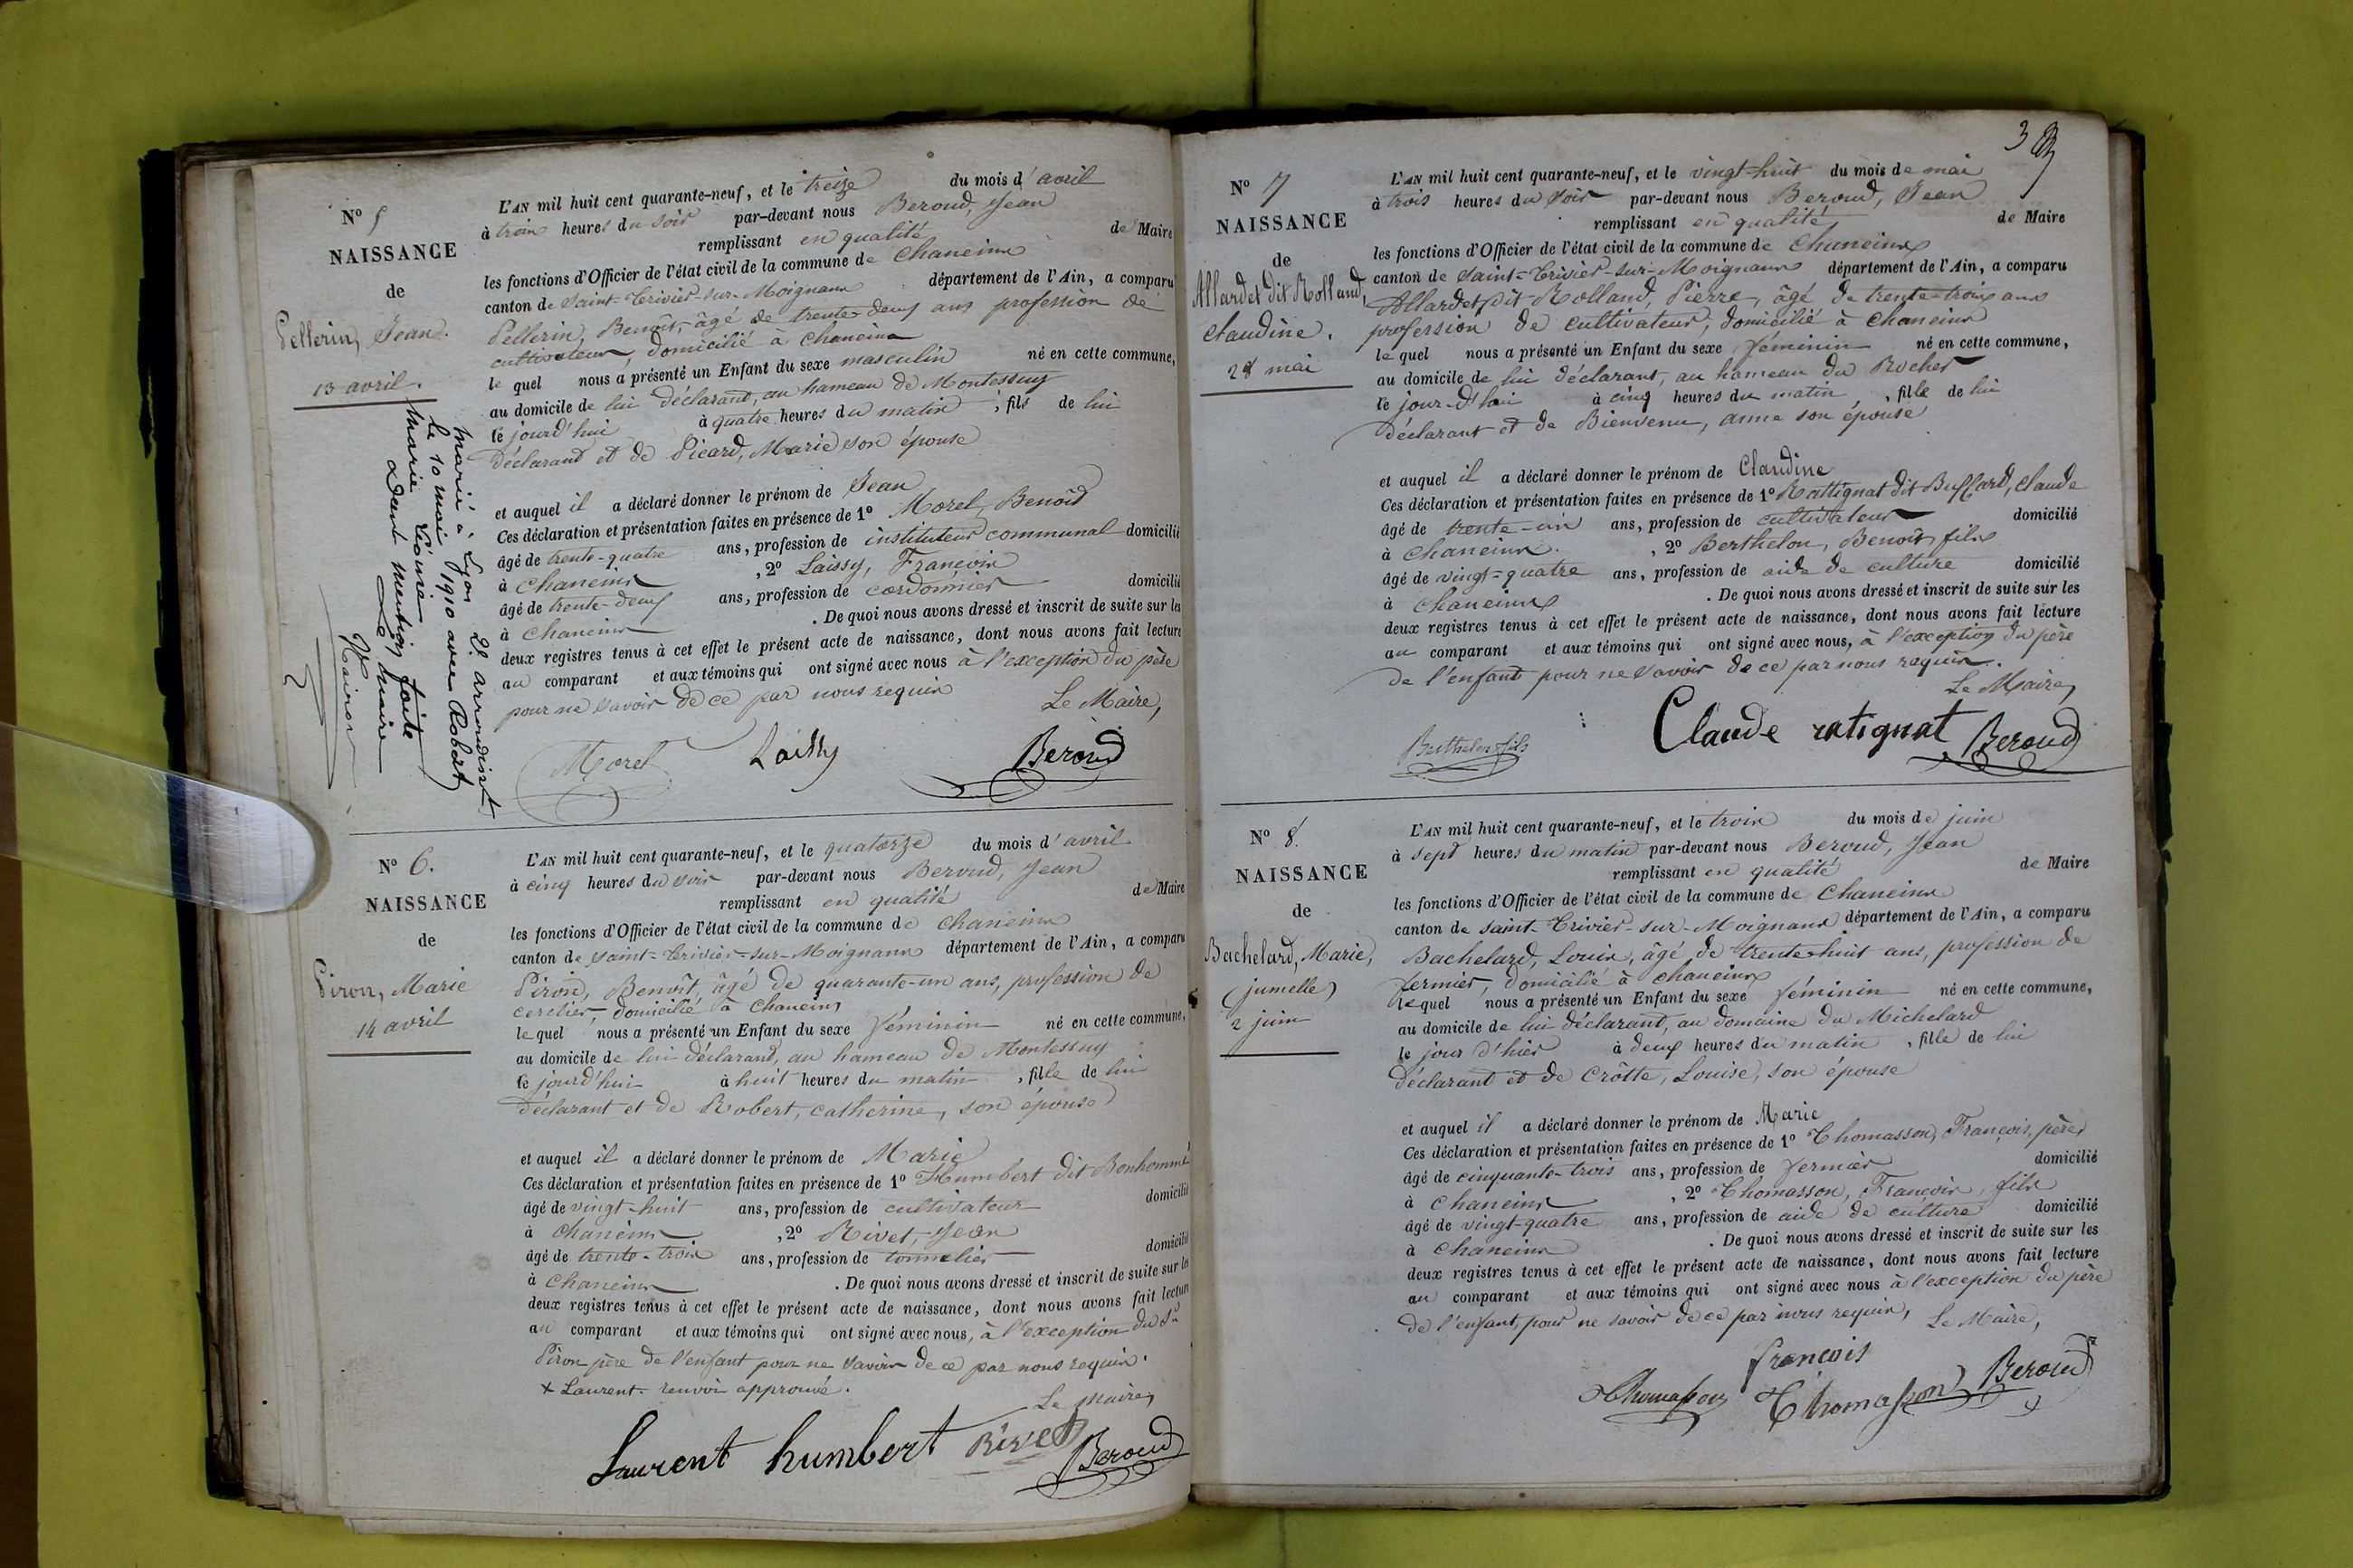 N° 5
NAISSANCE
de
Pellerin, Jean.
13 avril.
L'AN mil huit cent quarante-neuf, et le treize du mois d'avril
à trois heures du soir par-devant nous Beroud, Jean
remplissant en qualité de Maire
les fonctions d'Officier de l'état civil de la commune de Chaneins
canton de Saint-Trivier-sur-Moignans département de l'Ain, a comparu
Pellerin, Benoît, âgé de trente-deux ans profession de
cultivateur, domicilié à Chaneins
le quel nous a présenté un Enfant du sexe masculin né en cette commune,
au domicile de lui déclarant, au hameau de Montessuy
le jourd'hui à quatre heures du matin, fils de lui
déclarant et de Picard, Marie son épouse
et auquel il a déclaré donner le prénom de Jean
Ces déclaration et présentation faites en présence de 1° Morel, Benoît
âgé de trente-quatre ans, profession de instituteur communal domicilié
à Chaneins, 2° Laissy, François
âgé de trente-deux ans, profession de cordonnier domicilié
à Chaneins. De quoi nous avons dressé et inscrit de suite sur les
deux registres tenus à cet effet le présent acte de naissance, dont nous avons fait lecture
au comparant et aux témoins qui ont signé avec nous à l'exception du père
pour ne savoir de ce par nous requis
Le Maire,
Morel Laissy Beroud
Marié à Lyon 2e arrondisnt
le 10 mai 1910 avec Robert
Marie
dont mention faite
Le maire
N° 6.
NAISSANCE
de
Piron, Marie
14 avril
L'AN mil huit cent quarante-neuf, et le quatorze du mois d'avril
à cinq heures du soir par-devant nous Beroud, Jean
remplissant en qualité de Maire
les fonctions d'Officier de l'état civil de la commune de Chaneins
canton de Saint-Trivier-sur-Moignans département de l'Ain, a comparu
Piron, Benoît, âgé de quarante-un ans, profession de
cerclier, domicilié à Chaneins
le quel nous a présenté un Enfant du sexe féminin né en cette commune,
au domicile de lui déclarant, au hameau de Montessuy
le jourd'hui à huit heures du matin, fille de lui
déclarant et de Robert, catherine, son épouse
et auquel il a déclaré donner le prénom de Marie
Ces déclaration et présentation faites en présence de 1° Humbert dit Bonhomme
âgé de vingt-huit ans, profession de cultivateur domicilié
à Chaneins, 2° Rivet, Jean
âgé de trente-trois ans, profession de tonnelier domicilié
à Chaneins. De quoi nous avons dressé et inscrit de suite sur les
deux registres tenus à cet effet le présent acte de naissance, dont nous avons fait lecture
au comparant et aux témoins qui ont signé avec nous, à l'exception du Sr
Piron père de l'enfant pour ne savoir de ce par nous requis.
+ Laurent. renvoi approuvé.
Le Maire,
Laurent humbert Rivet Beroud
3
N° 7
NAISSANCE
de
Allardet dit Rolland,
Claudine.
28 mai
L'AN mil huit cent quarante-neuf, et le vingt-huit du mois de mai
à trois heures du soir par-devant nous Beroud, Jean
remplissant en qualité de Maire
les fonctions d'Officier de l'état civil de la commune de Chaneins
canton de Saint-Trivier-sur-Moignans département de l'Ain, a comparu
Allardet dit Rolland, Pierre, âgé de trente-trois ans
profession de cultivateur, domicilié à Chaneins
le quel nous a présenté un Enfant du sexe féminin né en cette commune,
au domicile de lui déclarant, au hameau du Rocher
le jour-d'hui à cinq heures du matin, fille de lui
déclarant et de Bienvenu, anne son épouse
et auquel il a déclaré donner le prénom de Claudine
Ces déclaration et présentation faites en présence de 1° Rattignat dit Buffard, Claude
âgé de trente-un ans, profession de cultivateur domicilié
à Chaneins., 2° Berthelon, Benoît, fils
âgé de vingt-quatre ans, profession de aide de culture domicilié
à Chaneins. De quoi nous avons dressé et inscrit de suite sur les
deux registres tenus à cet effet le présent acte de naissance, dont nous avons fait lecture
au comparant et aux témoins qui ont signé avec nous, à l'exception du père
de l'enfant pour ne savoir de ce par nous requis.
Le Maire,
Berthelon fils Claude ratignat Beroud
N° 8.
NAISSANCE
de
Bachelard, Marie,
(jumelle)
2 juin
L'AN mil huit cent quarante-neuf, et le trois du mois de juin
à sept heures du matin par-devant nous Beroud, Jean
remplissant en qualité de Maire
les fonctions d'Officier de l'état civil de la commune de Chaneins
canton de Saint-Trivier-sur-Moignans département de l'Ain, a comparu
Bachelard, Louis, âgé de trente-huit ans, profession de
fermier, domicilié à Chaneins
le quel nous a présenté un Enfant du sexe féminin né en cette commune,
au domicile de lui déclarant, au domaine du Michelard
le jour d'hier à deux heures du matin, fille de lui
déclarant et de Crôtte, Louise, son épouse
et auquel il a déclaré donner le prénom de Marie
Ces déclaration et présentation faites en présence de 1° Thomasson, François, père
âgé de cinquante-trois ans, profession de fermier domicilié
à Chaneins, 2° Thomasson, François, fils
âgé de vingt-quatre ans, profession de aide de culture domicilié
à Chaneins. De quoi nous avons dressé et inscrit de suite sur les
deux registres tenus à cet effet le présent acte de naissance, dont nous avons fait lecture
au comparant et aux témoins qui ont signé avec nous à l'exception du père
de l'enfant, pour ne savoir de ce par nous requis, Le Maire,
francois
Thomasson Thomasson Beroud